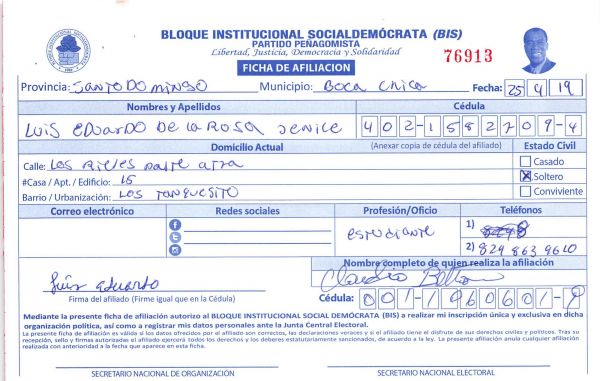 BLOQUE INSTITUCIONAL SOCIALDEMÓCRATA (BIS)
PARTIDO PEÑAGOMISTA
Libertad, Justicia, Democracia y Solidaridad
76913
FICHA DE AFILIACION
Provincia: Santo Domingo Municipio: Boca Chica Fecha: 25 4 19
Nombres y Apellidos Cédula
Luis Eduardo De La Rosa 402-1582709-4
Domicilio Actual (Anexar copia de cédula del afiliado) Estado Civil
Calle: Los Rieles parte atra Casado
#Casa / Apt. / Edificio: 15 X Soltero
Barrio / Urbanización: Los Tanquesito Conviviente
Correo electrónico Redes sociales Profesión/Oficio Teléfonos
estudiante 1)
2) 829 863 9610
Nombre completo de quien realiza la afiliación
Luis Eduardo Claudio
Firma del afiliado (Firme igual que en la Cédula) Cédula: 001-1960601-9
Mediante la presente ficha de afiliación autorizo al BLOQUE INSTITUCIONAL SOCIAL DEMÓCRATA (BIS) a realizar mi inscripción única y exclusiva en dicha
organización política, así como a registrar mis datos personales ante la Junta Central Electoral.
La presente ficha de afiliación es válida si los datos ofrecidos por el afiliado son correctos, las declaraciones veraces y si el afiliado tiene el disfrute de sus derechos civiles y políticos. Tras su
recepción, sello y firmas autorizadas el afiliado ejercerá todos los derechos y los deberes estatutariamente sancionados, de acuerdo a la ley. La presente afiliación anula cualquier afiliación
realizada con anterioridad a la fecha que aparece en esta ficha.
SECRETARIO NACIONAL DE ORGANIZACIÓN SECRETARIO NACIONAL ELECTORAL